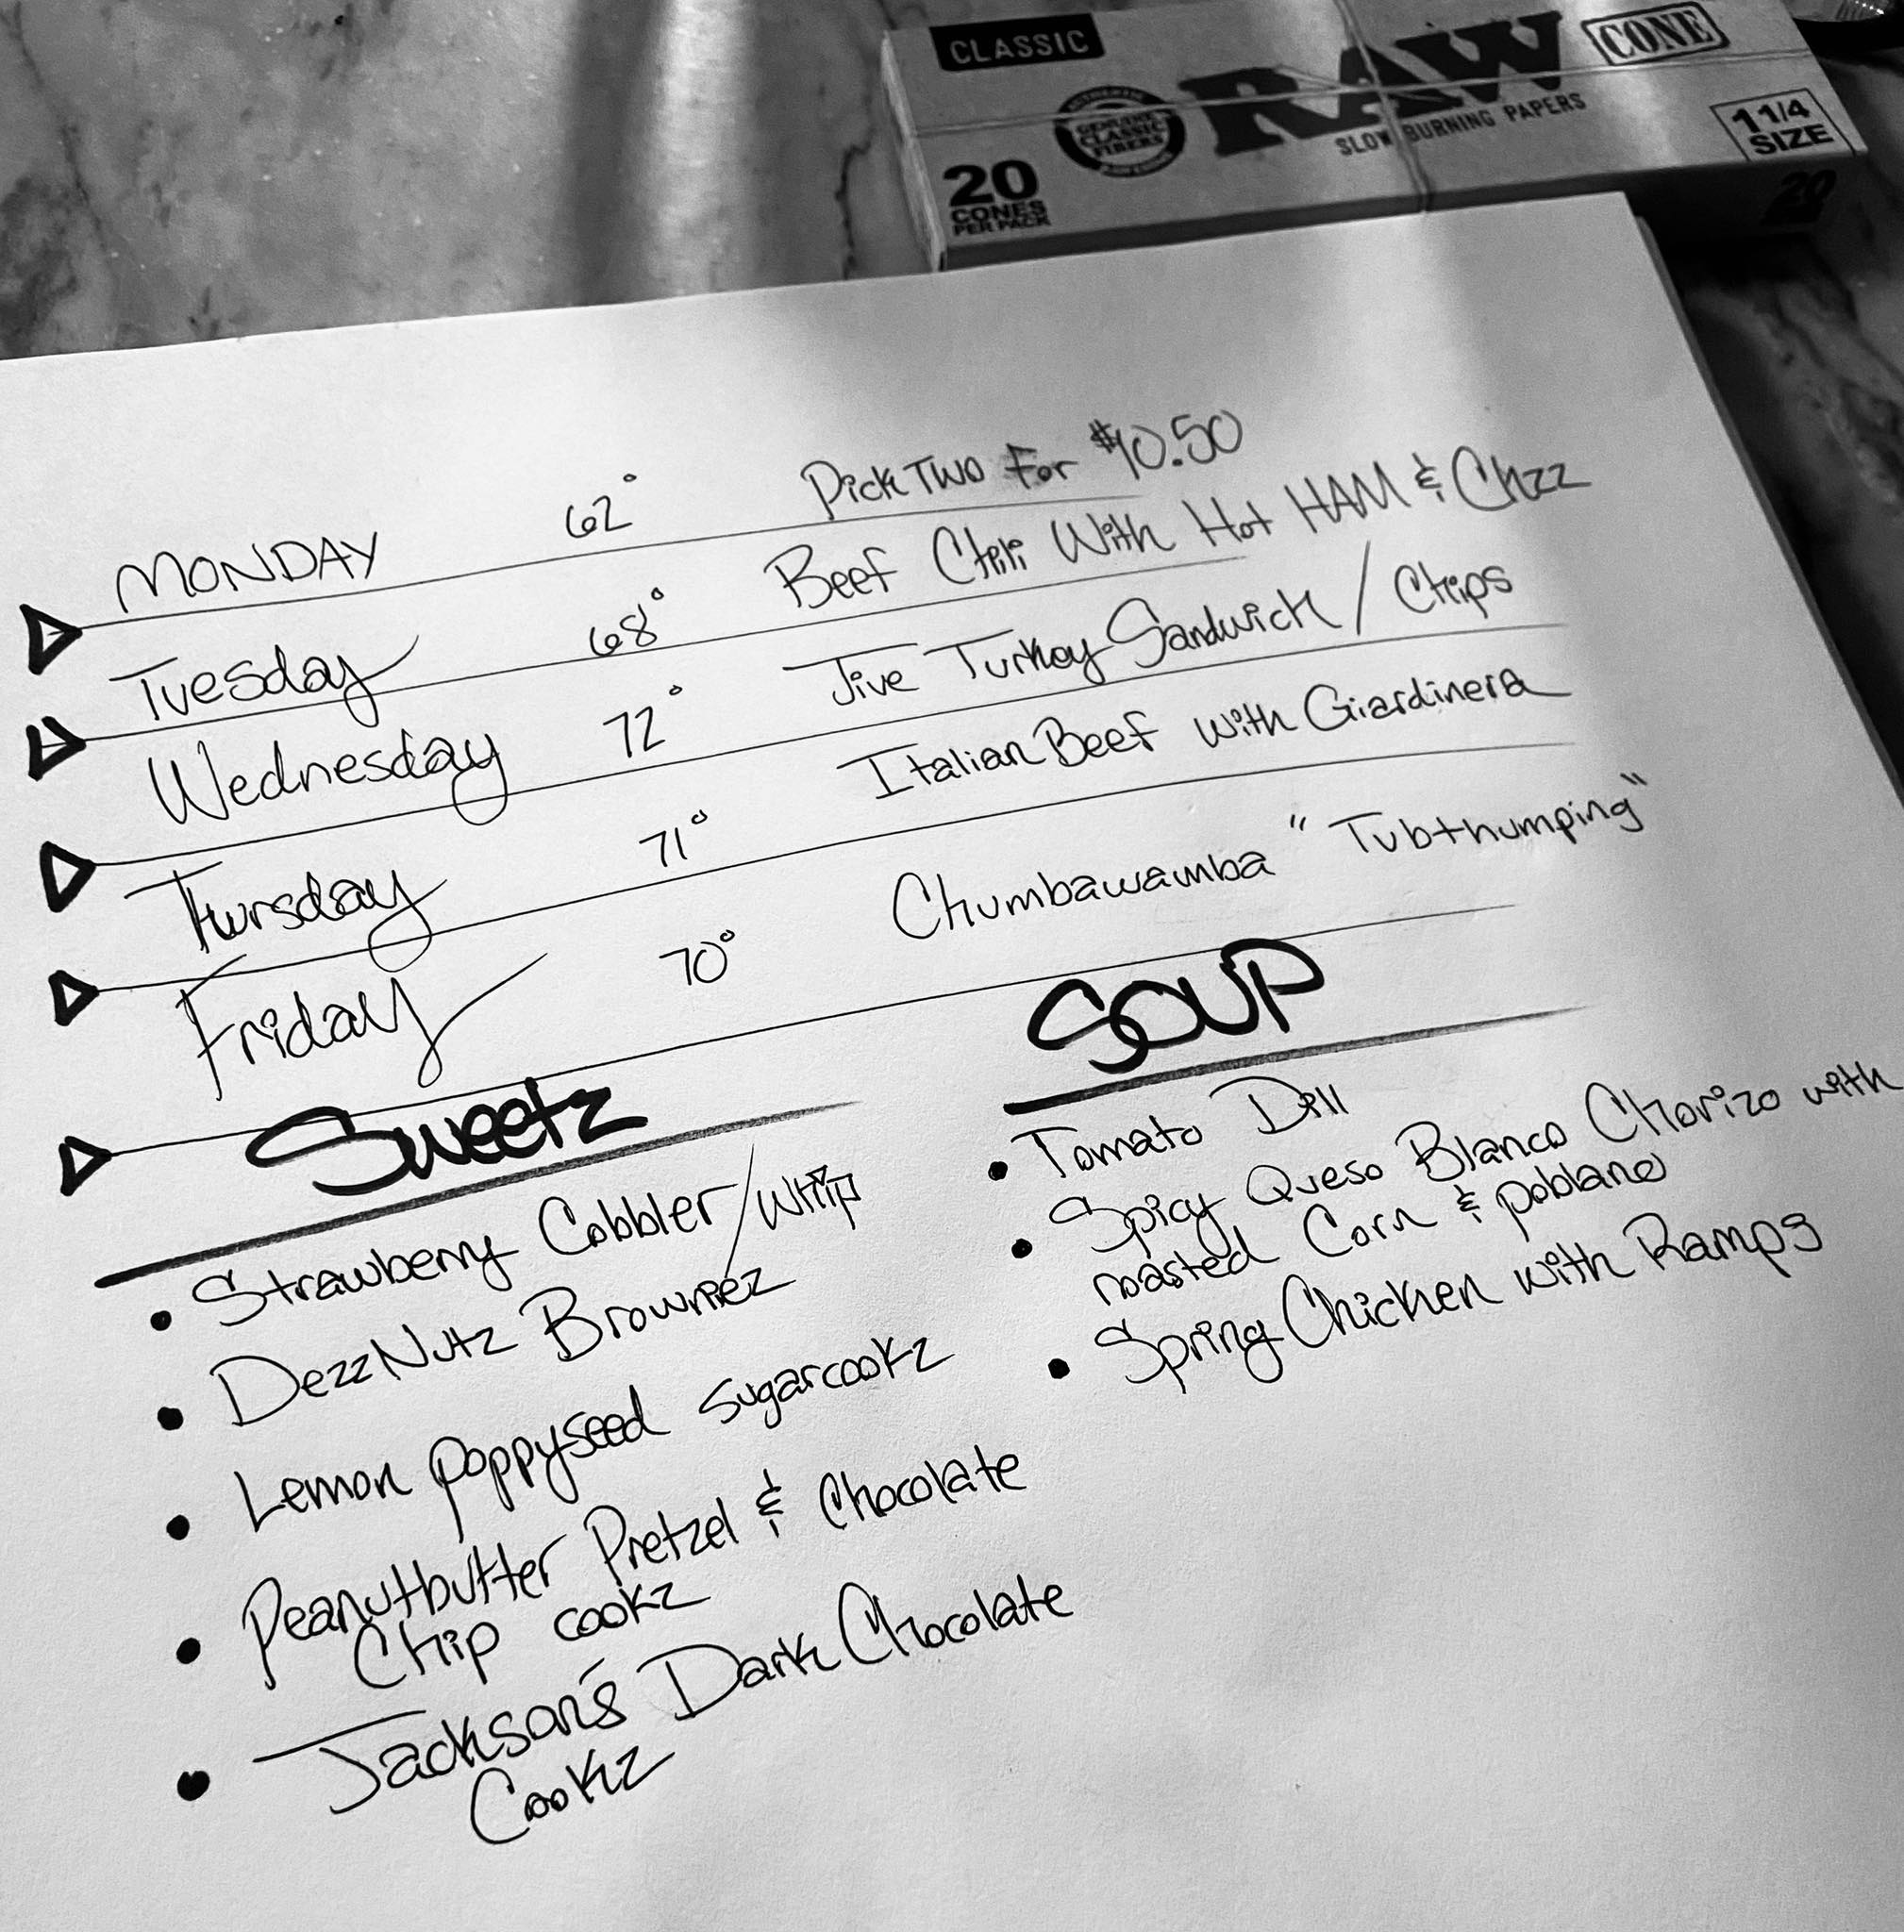 CLASSIC
RAW
CONE
AUTHENTIC
GENUINE
CLASSIC
FIBERS
SLOW BURNING PAPERS
1 1/4
SIZE
20
CONES
PER PACK
20
MONDAY 62° Pick Two For $10.50
Tuesday 68° Beef Chili With Hot HAM & Chzz
Wednesday 72° Jive Turkey Sandwich / Chips
Thursday 71° Italian Beef with Giardinera
Friday 70° Chumbawamba "Tubthumping"
Sweetz
• Strawberry Cobbler/Whip
• DezzNutz Browniez
• Lemon poppyseed sugarcookz
• Peanutbutter Pretzel & Chocolate
Chip cookz
• Jackson's Dark Chocolate
Cookz
SOUP
• Tomato Dill
• Spicy Queso Blanco Chorizo with
roasted Corn & poblano
• Spring Chicken with Ramps